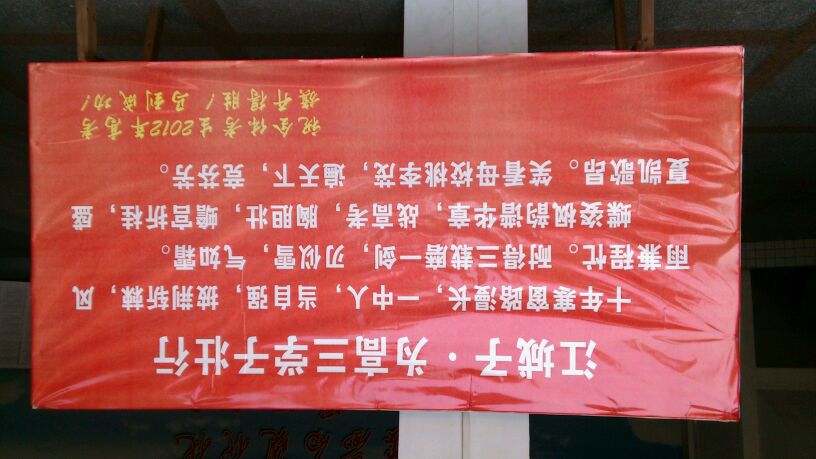 江城子·为高三学子壮行
十年寒窗路漫长，一中人，当自强，披荆斩棘，风
雨兼程忙。耐得三载磨一剑，刃似雪，气如霜。
蝶姿枫韵谱华章，战高考，胸胆壮，蟾宫折桂，盛
夏凯歌昂。笑看母校桃李茂，遍天下，竞芬芳。
祝全体考生2012年高考
旗开得胜！马到成功！